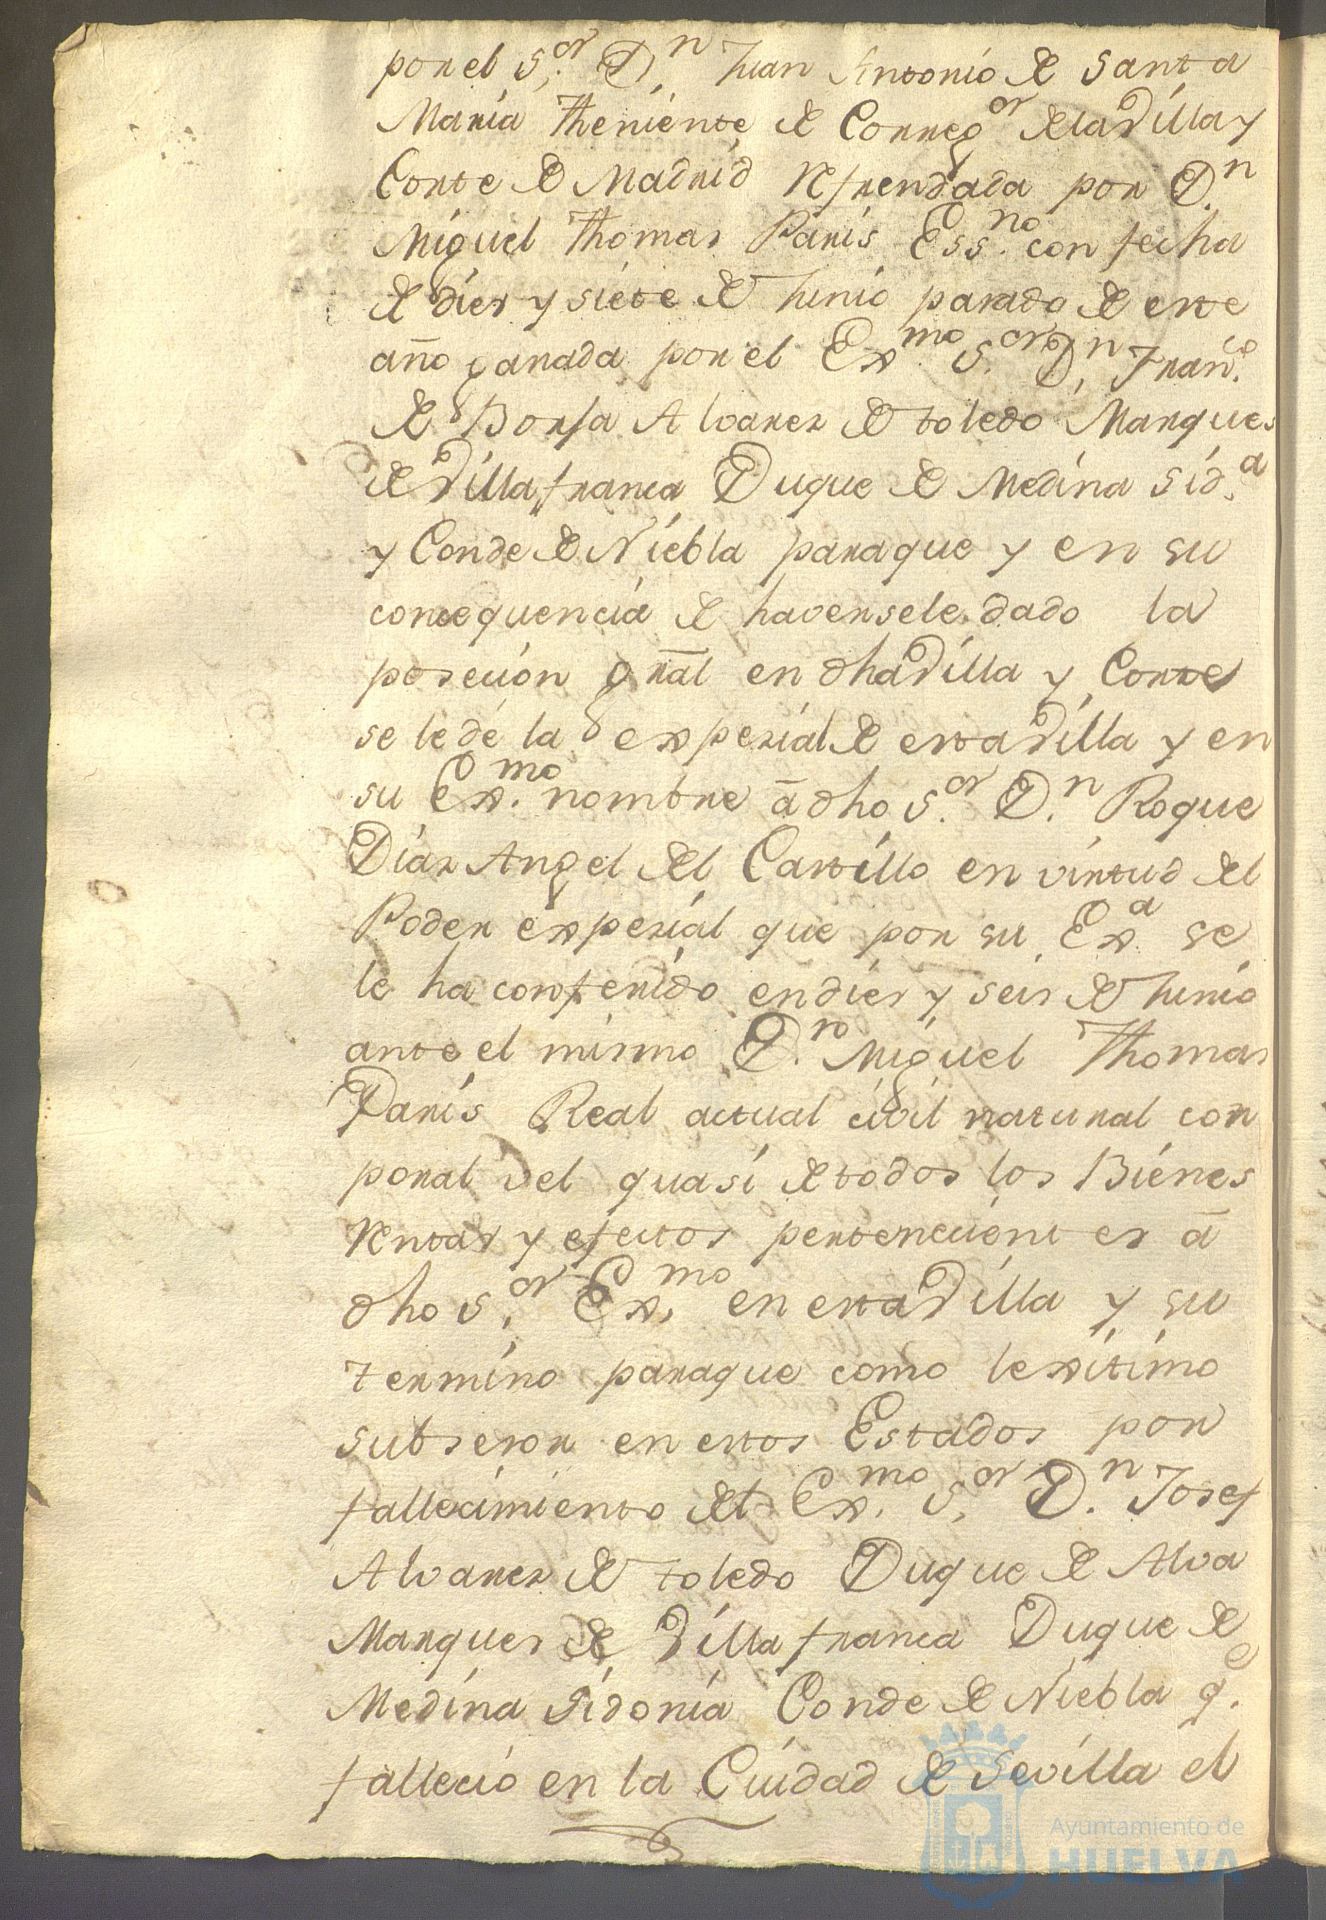 por el S.or D.n Juan Antonio de Santa
Maria Theniente de Correg.or de la Villa y
Corte de Madrid Refrendada por D.n
Miguel Thomas Paris Ess.no con fecha
de dies y siete de Junio pasado de este
año ganada por el Ex.mo S.or D.n Fran.co
de Borja Alvarez de toledo Marques
de Villafranca Duque de Medina Sid.a
y Conde de Niebla paraque y en su
consequencia de haversele dado la
posecion gral en dha Villa y Corte
se le dé la expezial de esta Villa y en
su Ex.mo nombre â dho S.or D.n Roque
Diaz Angel del Castillo en virtud del
Poder expezial que por su Ex.a se
le ha conferido en dies y seis de Junio
ante el mismo D.n Miguel Thomas
Paris Real actual civil natural cor
poral vel quasi de todos los Bienes
Rentas y efectos pertenecientes â
dho S.or Ex.mo en esta Villa y su
termino paraque como lexitimo
subsesor en estos Estados por
fallecimiento del Ex.mo S.or D.n Josef
Alvarez de toledo Duque de Alva
Marques de Villafranca Duque de
Medina Sidonia Conde de Niebla q.e
fallecio en la Ciudad de Sevilla el
Ayuntamiento de
HUELVA